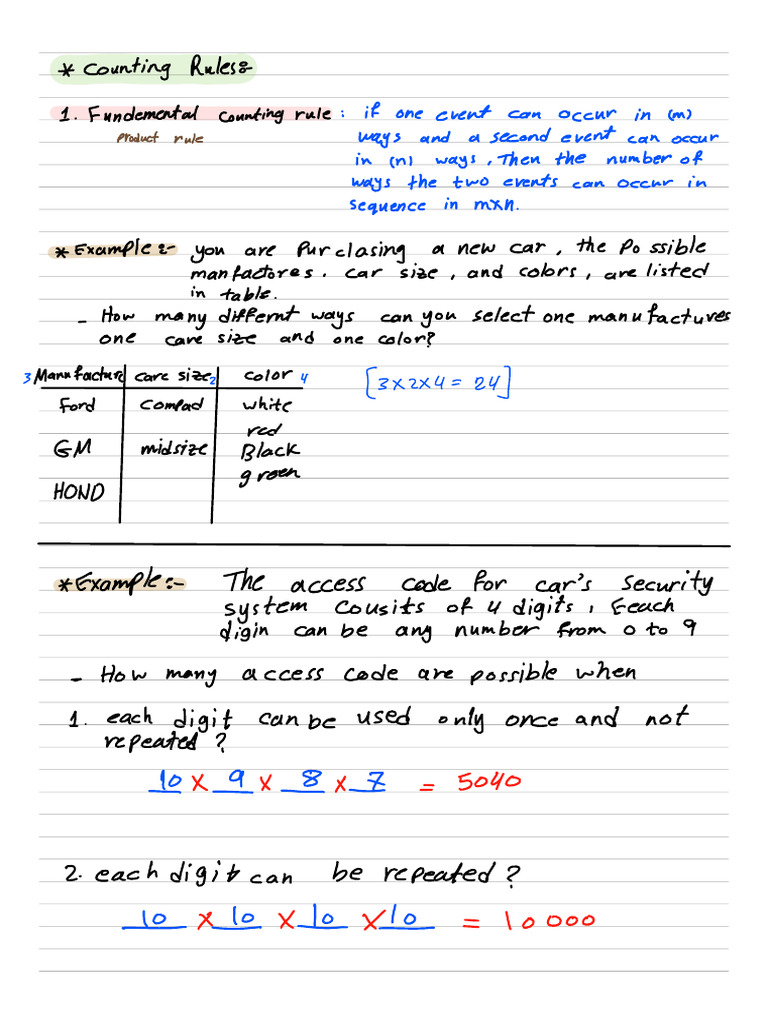 * Counting Rules:-
1. Fundemental counting rule : if one event can occur in (m)
product rule
ways and a second event can occur
in (n) ways, Then the number of
ways the two events can occur in
sequence in m×n.
* Example :- you are Purclasing a new car, the Possible
manfactores. car size, and colors, are listed
in table.
- How many differnt ways can you select one manufactures
one care size and one color?
3 Manufacture care size 2 color 4 [3×2×4 = 24]
Ford Compad white
red
GM midsize Black
green
HOND
* Example:- The access code for car's security
system cousits of 4 digits, Eeach
digin can be any number from 0 to 9
- How many access code are possible when
1. each digit can be used only once and not
repeated?
10 × 9 × 8 × 7 = 5040
2. each digit can be repeated?
10 × 10 × 10 × 10 = 10000